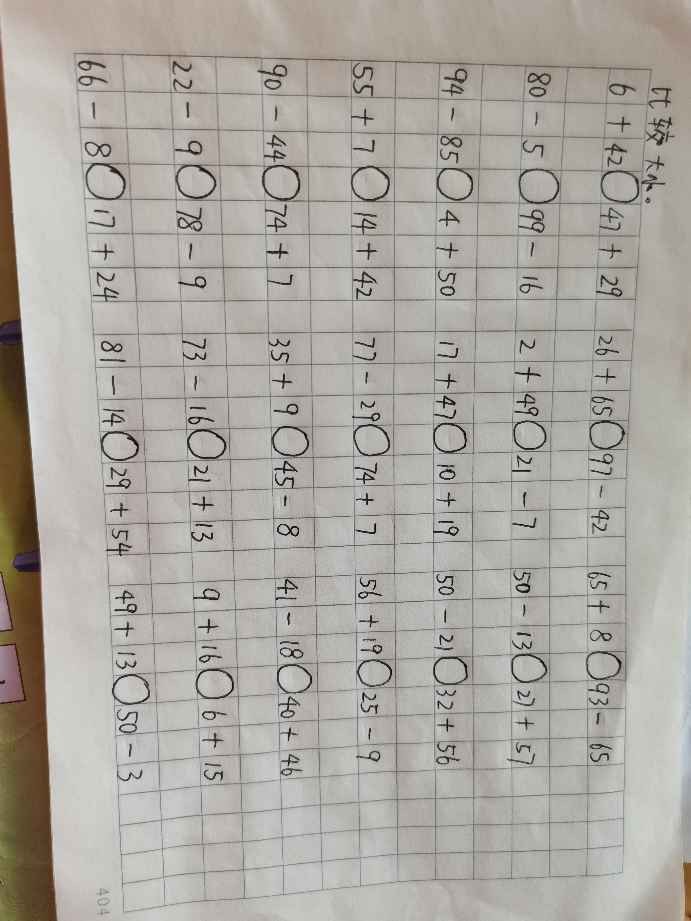 比较大小。
6 + 42○47 + 29 26 + 65○97 - 42 65 + 8○93 - 65
80 - 5○99 - 16 2 + 49○21 - 7 50 - 13○27 + 57
94 - 85○4 + 50 17 + 47○10 + 19 50 - 21○32 + 56
55 + 7○14 + 42 77 - 29○74 + 7 56 + 19○25 - 9
90 - 44○74 + 7 35 + 9○45 - 8 41 - 18○40 + 46
22 - 9○78 - 9 73 - 16○21 + 13 9 + 16○6 + 15
66 - 8○17 + 24 81 - 14○29 + 54 49 + 13○50 - 3
404